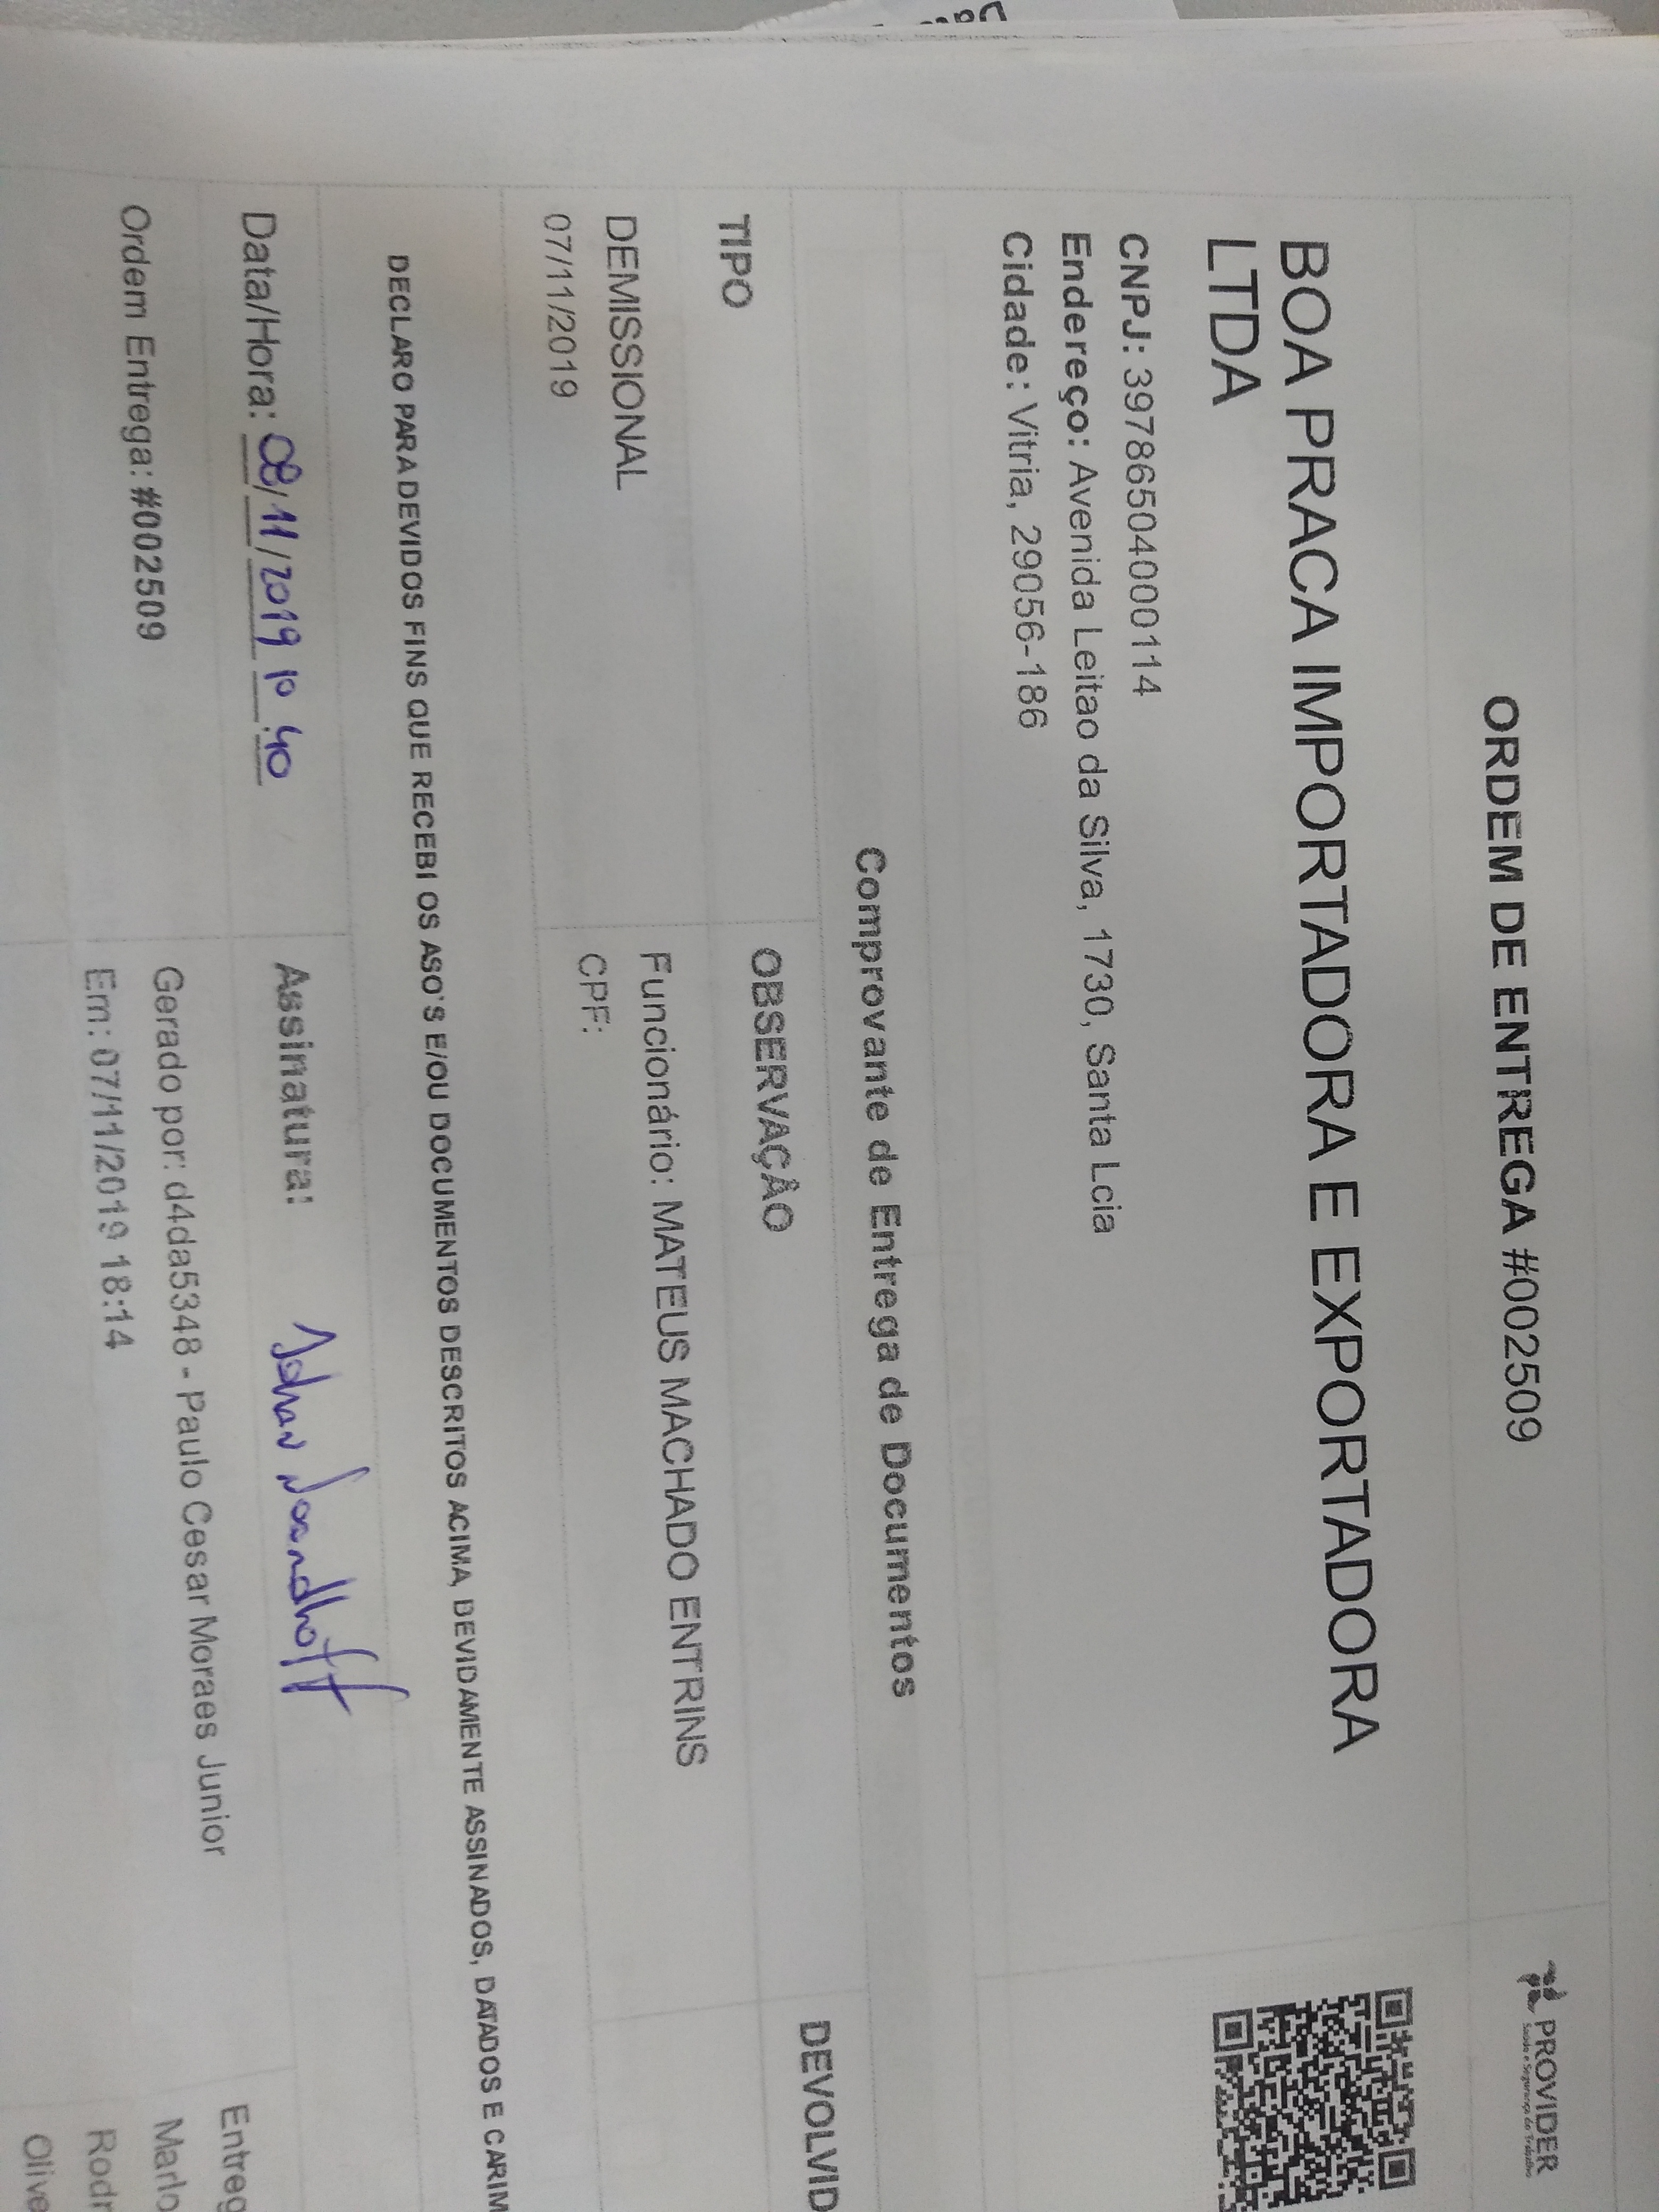 ORDEM DE ENTREGA #002509
PROVIDER
Saúde e Segurança do Trabalho
BOA PRACA IMPORTADORA E EXPORTADORA
LTDA
CNPJ: 39786504000114
Endereço: Avenida Leitao da Silva, 1730, Santa Lcia
Cidade: Vitria, 29056-186
Comprovante de Entrega de Documentos
TIPO OBSERVAÇÃO DEVOLVID
DEMISSIONAL Funcionário: MATEUS MACHADO ENTRINS
07/11/2019 CPF:
DECLARO PARA DEVIDOS FINS QUE RECEBI OS ASO'S E/OU DOCUMENTOS DESCRITOS ACIMA, DEVIDAMENTE ASSINADOS, DATADOS E CARIM
Data/Hora: 08/11/2019 10:40 Assinatura:
Ordem Entrega: #002509 Gerado por: d4da5348 - Paulo Cesar Moraes Junior
Em: 07/11/2019 18:14
Entreg
Marlo
Rodr
Olive